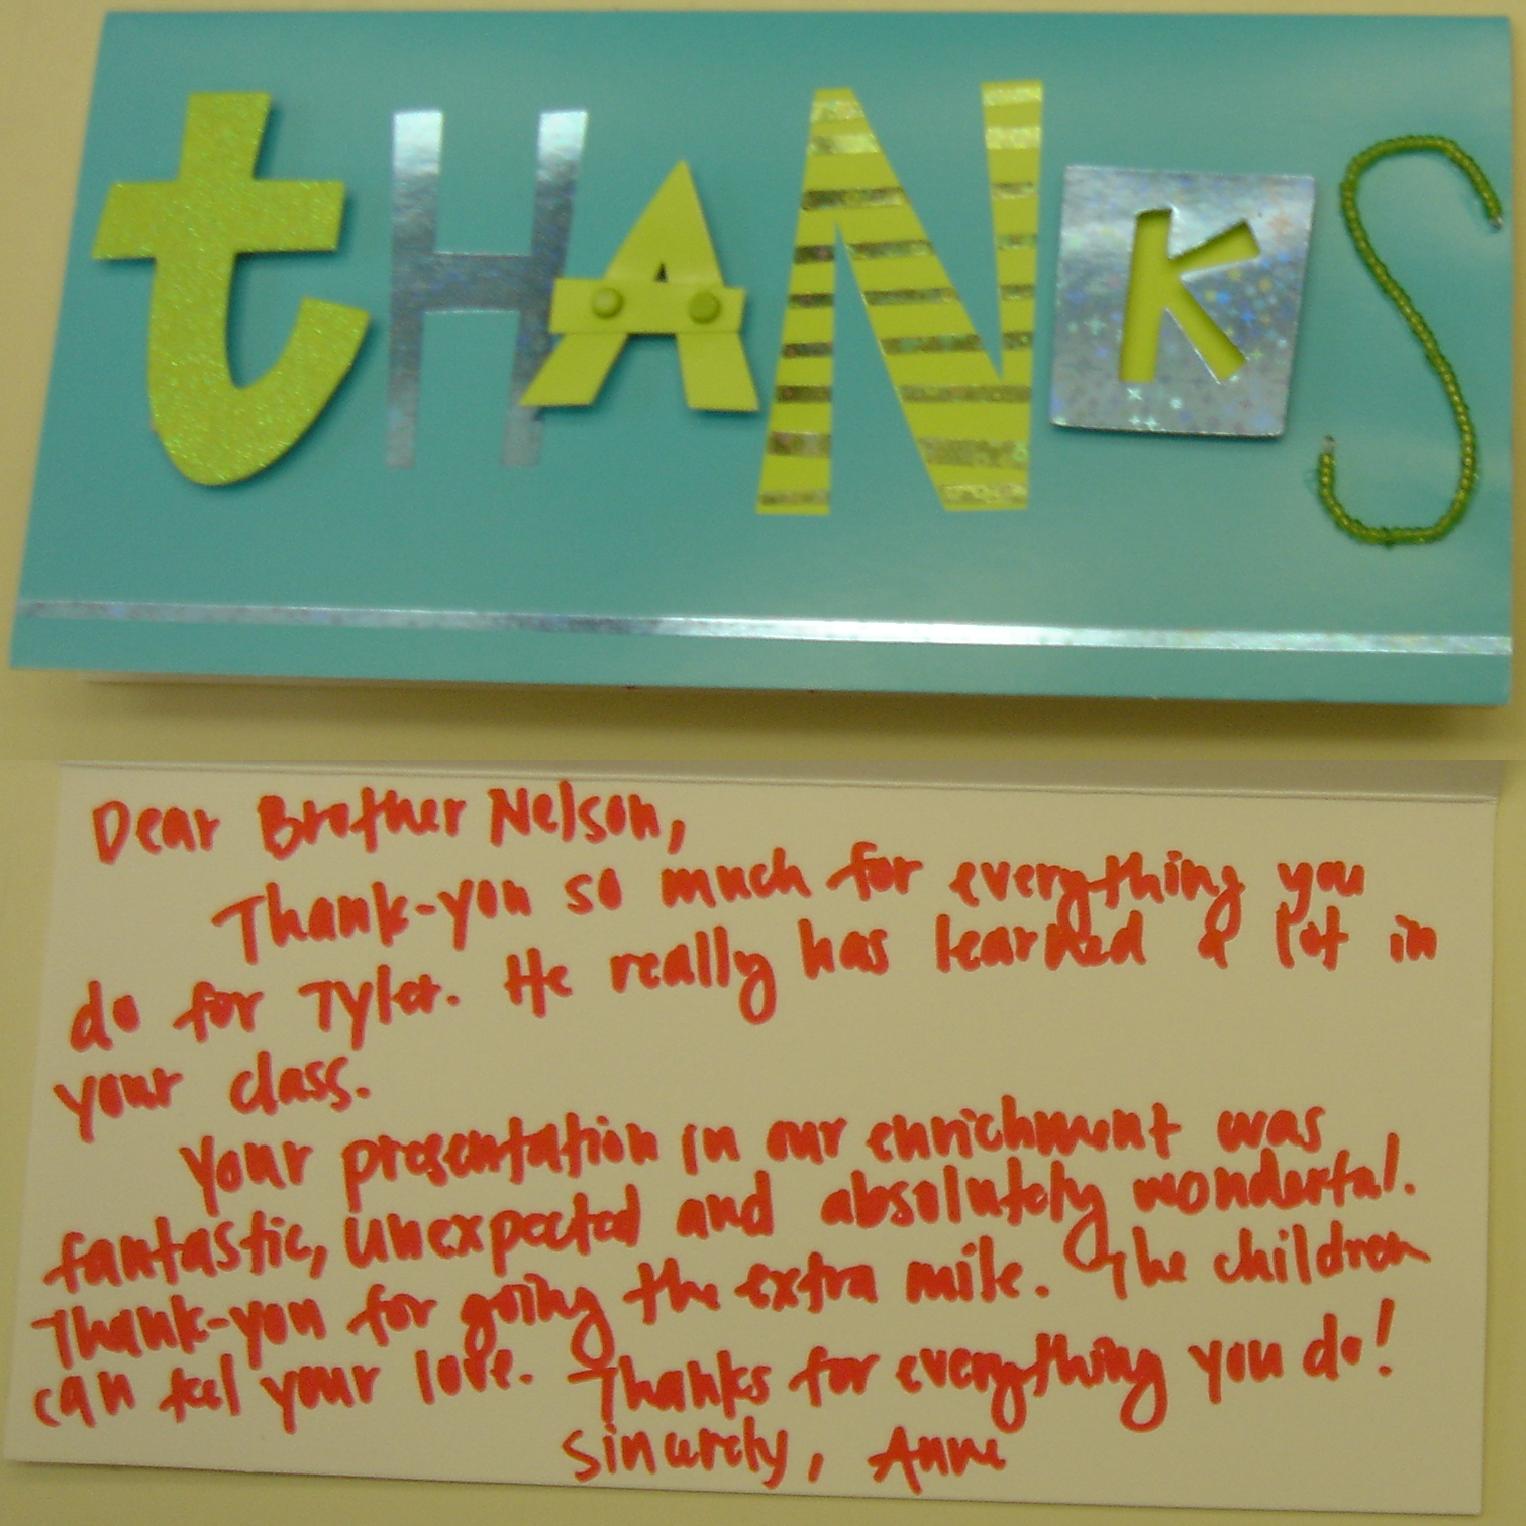 tHANKS
Dear Brother Nelson,
Thank-you so much for everything you
do for Tyler. He really has learned a lot in
your class.
Your presentation in our enrichment was
fantastic, unexpected and absolutely wonderful.
Thank-you for going the extra mile. The children
can feel your love. Thanks for everything you do!
Sincerely, Anne